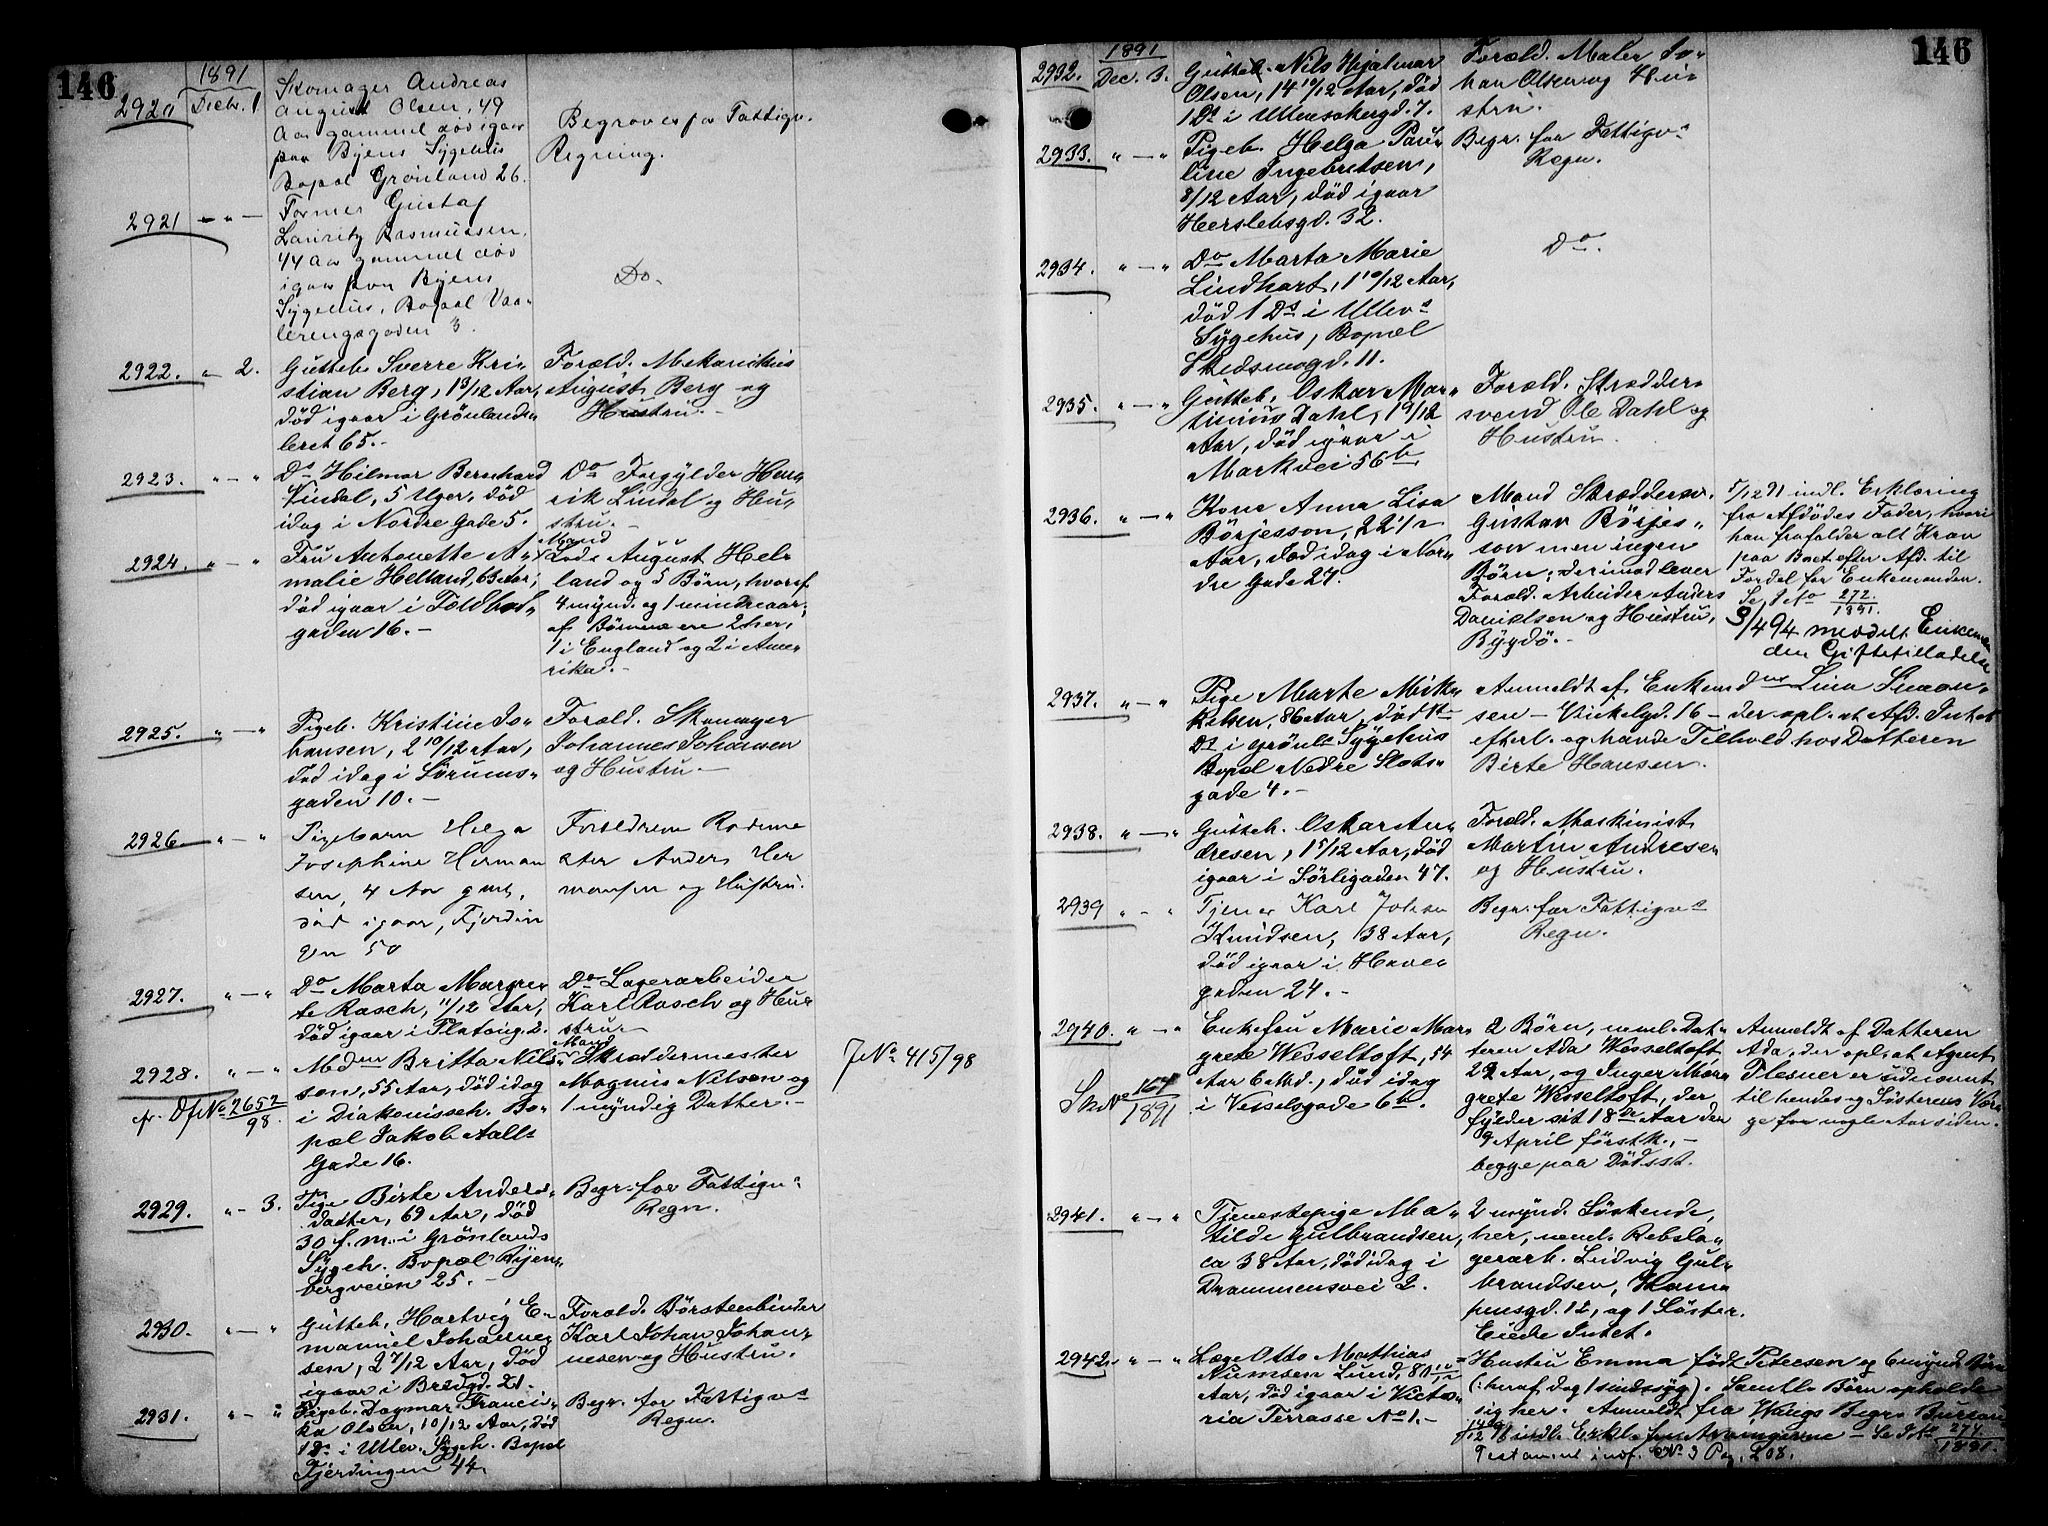 146
1891
2920 Decbr. 1
Skomager Andreas
August Olsen, 49
Aar gammel død igaar
paa Byens Sygehus
Bopæl Grönland 26.
Begraves for Fattigv.
Regning.
2921 — " —
Former Gustaf
Lauritz Rasmussen,
44 Aar gammel død
igaar paa Byens
Sygehus, Bopæl Vaa-
lerengsgaden 3.
Do.
2922. " 2.
Gutteb. Sverre Kri-
stian Berg, 1 3/12 Aar,
död igaar i Grönlands-
leret 65.-
Foræld. Mekanikus
August Berg og
Hustru.-
2923. " — "
Do Hilmar Bernhard
Lindal, 5 Uger, död
idag i Nordre Gade 5.
Do Forgylder Hen-
rik Lindal og Hu-
stru.-
2924. " — "
Fru Antonette A-
malie Helland, 63 Aar,
död igaar i Toldbod-
gaden 16.-
Mand
Lods August Hel-
land og 5 Börn, hvoraf
4 mynd. og 1 mindreaar.
af Börnene ere 2 her,
1 i England og 2 i Ame-
rika.-
2925. " — "
Pigeb. Kristine Jo-
hansen, 2 10/12 Aar,
död idag i Sörums-
gaden 10.-
Foræld. Skomager
Johannes Johansen
og Hustru.-
2926. " — "
Pigebarn Helga
Josephine Herman
sen, 4 Aar gml,
död igaar, Fjerdin
gen 50
Forældrene Rodeme
ster Anders Her
mansen og Hustru.
2927. " — "
Do Marta Margre-
te Rasch, 11/12 Aar,
död igaar i Platoug. 2.
Do Lagerarbeider
Karl Rasch og Hu-
stru.-
2928. " — "
cfr. Df No 2652/98.
Mdm Britta Nils-
son, 55 Aar, död idag
i Diakonisseh. Bo-
pæl Jakob Aalls
Gade 16.
Mand
Skræddermester
Magnus Nilsson og
1 myndig Datter.-
J No 415/98
2929. " 3.
Pige Birte Anders-
datter, 69 Aar, död
30 f. m. i Grönlands
Sygeh. Bopæl Ryen-
bergveien 25.-
Begr. for Fattigv.
Regn.
2930. " — "
Gutteb. Hartvig E-
manuel Johannes-
sen, 2 7/12 Aar, död
igaar i Bredgd. 21.
Foræld. Börstenbinder
Karl Johan Johan-
nesen og Hustru.
2931. " — "
Pigeb. Dagmar Francis-
ka Olsen, 10/12 Aar, död
1 Ds i Ullev. Sygeh. Bopæl
Fjerdingen 44.
Begr. for Fattigvs
Regn.
146
1891
2932. Dec. 3.
Gutteb. Nils Hjalmar
Olsen, 14 10/12 Aar, död
1 Ds i Ullensakergd. 7.
Foræld. Maler Jo-
han Olsen og Hu-
stru.
2933. " — "
Pigeb. Helga Pau-
line Ingebretsen,
8/12 Aar, död igaar
Herslebsgd. 32.
Begr. for Fattigvs
Regn.
2934. " — "
Do Marta Marie
Lindhart, 1 10/12 Aar,
död 1 Ds i Ullevs
Sygehus, Bopæl
Skedsmogd. 11.
Do.
2935. " — "
Gutteb. Oskar Mar-
tinius Dahl, 1 9/12
Aar, död igaar i
Markvei 56 b.
Foræld. Skrædder-
svend Ole Dahl og
Hustru.
2936. " — "
Kone Anna Lisa
Börjesson, 22 1/2
Aar, död idag i Nor-
dre Gade 27.
Mand Skræddersv.
Gustav Börjes-
son men ingen
Börn; derimod lever
Foræld. Arbeider Anders
Danielsen og Hustru,
Bygdö.-
5/12 91 indl. Erklæring
fra Afdödes Fader, hvori
han frafalder alt Krav
paa Boet efter Afd. til
Fordel for Enkemanden.
Se J No 272./1891.
9/4 94 meddelt Enkeman
den Giftetilladelse
2937. " — "
Pige Marte Mik-
kelsen, 86 Aar, död 1st
Ds i Grönls Sygehus
Bopæl Nedre Slots-
gade 4.-
Anmeldt af Enkemdm Lina Simon-
sen — Vinkelgd. 16 — der opl. at Afd. Intet
efterl. og havde Tilhold hos Datteren
Birte Hansen.
2938. " — "
Gutteb. Oskar An-
dresen, 1 5/12 Aar, död
igaar i Sörligaden 47.
Foræld. Maskinist
Martin Andresen
og Hustru.
2939 " — "
Tjener Karl Johan
Knudsen, 38 Aar,
död igaar i Have-
gaden 24.-
Begr. for Fattigvs
Regn.
2940. " — "
Sk No 164/1891
Enkefru Marie Mar-
grete Wesseltoft, 54
Aar 6 Md., död idag
i Vesselsgade 6 b.
2 Börn, neml. Dat-
teren Ada Wesseltoft
22 Aar, og Inger Mar-
grete Wesseltoft, der
fylder sit 18de Aar den
9 April förstk.,-
begge paa Dödsst.
Anmeldt af Datteren
Ada, der opl. at Agent
Plesner er udnævnt
til hendes og Söstrens Vær-
ge for nogle Aar siden.-
2941. " — "
Tjenestepige Ma-
tilde Gulbrandsen,
ca 38 Aar, död idag i
Drammensvei 2.
2 mynd. Söskende,
her, neml. Rebsla-
gerarb. Ludvig Gul-
brandsen, Ham-
pensgd. 12, og 1 Söster.
Eiede Intet.
2942. " — "
Læge Otto Mathias
Numsen Lund, 80
Aar, död igaar i Victo-
ria Terrasse No 1.-
Hustru Emma födt Petersen og 6 mynd. Börn
(:heraf dog 1 sindssyg). Samtl. Börn opholde
sig her. Anmeldt fra Wangs Begr. Bureau
indl. Erkl. fra Arvingerne — Se J No 274./1891.
Testament indf. No 3 Pag. 208.